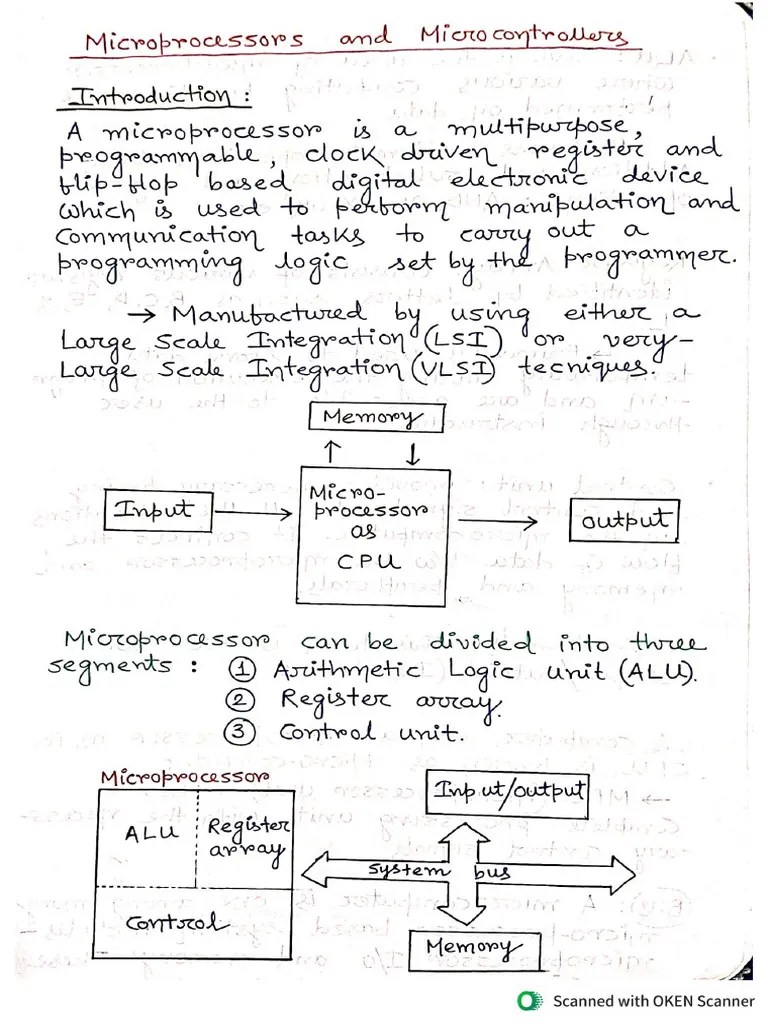 Microprocessors and Microcontrollers
Introduction :
A microprocessor is a multipurpose,
programmable, clock driven register and
flip-flop based digital electronic device
which is used to perform manipulation and
communication tasks to carry out a
programming logic set by the programmer.
→ Manufactured by using either a
Large Scale Integration (LSI) or very-
Large Scale Integration (VLSI) tecniques.
Memory
Input
Micro-
processor
as
CPU
output
Microprocessor can be divided into three
segments : ① Arithmetic Logic unit (ALU).
② Register array.
③ Control unit.
Microprocessor
ALU
Register
array
Control
Input/output
system bus
Memory
Scanned with OKEN Scanner